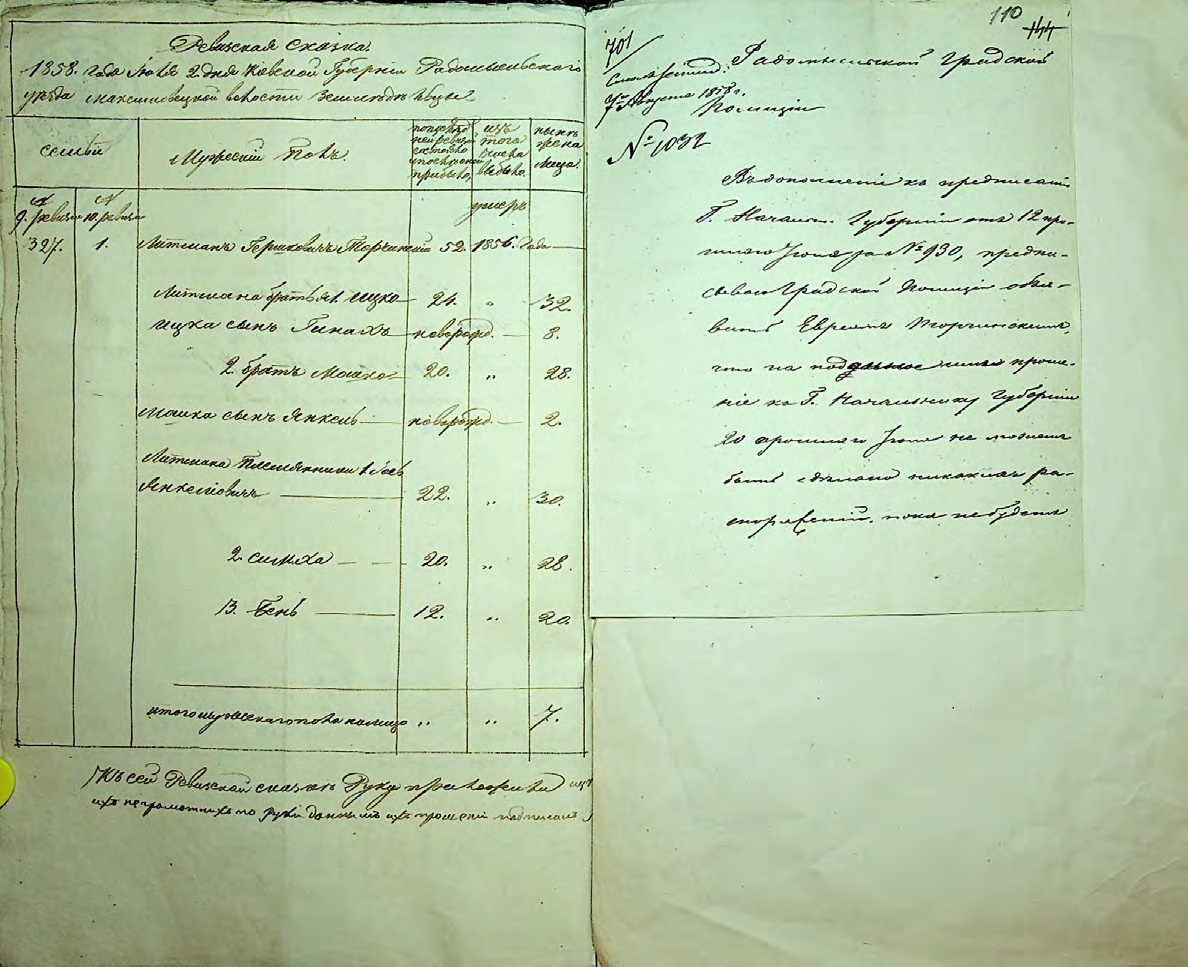 Ревизская сказка
1858. года Іюля 2 дня Кіевской Губерніи Радомысльскаго
уѣзда Максимовецкой волости Землѣдѣльцы
Семьи
Мужескій Полъ.
по послѣдней ревизіи состояло и послѣ оной прибыло.
изъ того числа выбыло.
нынѣ
лица.
№ 9. ревизіи
№ 10. ревизіи
умеръ
327. 1. Литманъ Гершковичъ Торчинскій 52. 1856. года
Литмана братья 1. Ицко 24. „ 32.
Ицка сынъ Пинахъ новорожд. 8.
2. братъ Мошко 20. „ 28.
Мошка сынъ Янкель новорожд. 2.
Литмана Племянники 1. Іось
Янкелiовичъ 22. „ 30.
2. Симха 20. „ 28.
3. Бень 12. „ 20.
итого мужескаго пола налицо „ „ 7.
Къ сей Ревизской сказкѣ Руку приложили
ихъ неграмотныхъ по ихъ прошенію подписалъ
110
144
701
7го Августа 1858 г.
№ 1032
Радомысльской Градской
Полиціи
Въ дополненіе къ предписанію
Г. Начальн. Губерніи отъ 12 про-
шлаго Іюня за № 930, предпи-
сываю Градской Полиціи объя-
вить Евреямъ Торчинскимъ,
что на поданное ими проше-
ніе къ Г. Начальнику Губерніи
20 прошлаго Іюня не можетъ
быть сдѣлано никакихъ ра-
споряженій, пока не будетъ